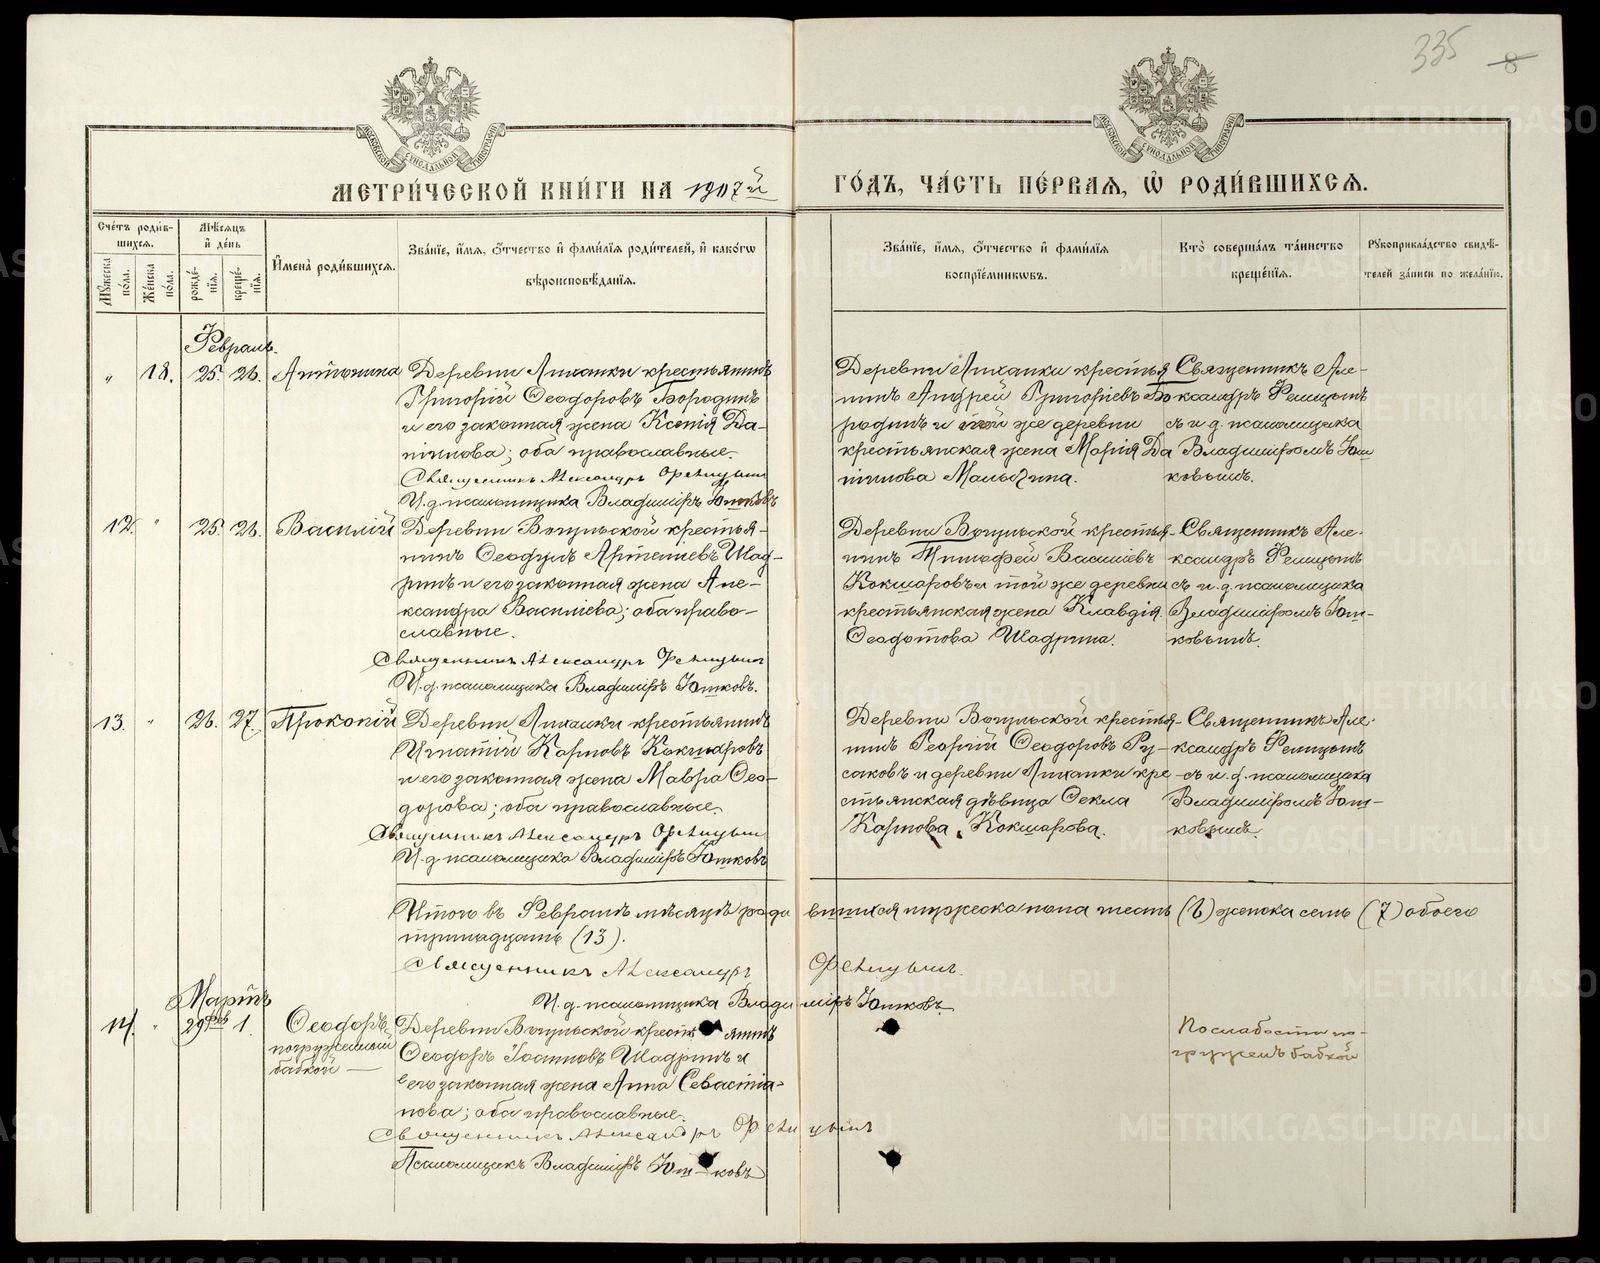 335 8
МОСКОВСКОЙ СѴНОДАЛЬНОЙ ТИПОГРАФІИ
МОСКОВСКОЙ СѴНОДАЛЬНОЙ ТИПОГРАФІИ
МЕТРИ́ЧЕСКОЙ КНИ́ГИ НА 1907й
ГО́ДЪ, ЧА́СТЬ ПЕ́РВАЯ, Ѡ҆ РОДИ́ВШИХСЯ.
Сче́тъ роди́в-
шихся.
Мꙋ́жеска по́ла.
Же́нска по́ла.
Мѣ́сяцъ
и҆ де́нь
рожде́-
нїя.
креще́-
нїя.
И҆мена̀ роди́вшихся.
Зва́нїе, и҆́мя, ѻ҆́тчество и҆ фами́лїя роди́телей, и҆ како́гѡ
вѣроисповѣ́данїя.
Зва́нїе, и҆́мя, ѻ҆́тчество и҆ фами́лїя
воспрїе́мникѡвъ.
Кто̀ соверша́лъ та́инство
креще́нїя.
Рꙋкоприкла́дство свидѣ́-
телей за́писи по жела́нїю.
Февраль.
" 18. 25. 26. Антонина
Деревни Лиханки крестьянинъ
Григорій Ѳеодоровъ Бородинъ
и его законная жена Ксенія Да-
ниилова; оба православные.
Священникъ Александръ Фелицынъ
И.д. псаломщика Владиміръ Юшковъ
Деревни Лиханки крестья
нинъ Андрей Григоріевъ Бо
родинъ и той же деревни
крестьянская жена Марія Да
ниилова Мальгина.
Священникъ Але-
ксандръ Фелицынъ
съ и.д. псаломщика
Владиміромъ Юш
ковымъ.
12. " 25. 26. Василій
Деревни Вогульской крестья-
нинъ Ѳеодулъ Артемьевъ Шад-
ринъ и его законная жена Але-
ксандра Василіева; оба право-
славные.
Священникъ Александръ Фелицынъ
И.д. псаломщика Владиміръ Юшковъ.
Деревни Вогульской крестья-
нинъ Тимофей Василіевъ
Кокшаровъ и той же деревни
крестьянская жена Клавдія
Ѳеодотова Шадрина.
Священникъ Але-
ксандръ Фелицынъ
съ и.д. псаломщика
Владиміромъ Юш-
ковымъ.
13. " 26. 27. Прокопій
Деревни Лиханки крестьянинъ
Игнатій Карповъ Кокшаровъ
и его законная жена Мавра Ѳео-
дорова; оба православные.
Священникъ Александръ Фелицынъ
И.д. псаломщика Владиміръ Юшковъ
Деревни Вогульской крестья-
нинъ Георгій Ѳеодоровъ Ру-
саковъ и деревни Лиханки кре-
стьянская дѣвица Ѳекла
Карпова Кокшарова.
Священникъ Але-
ксандръ Фелицынъ
съ и.д. псаломщика
Владиміромъ Юш-
ковымъ.
Итого въ Февралѣ мѣсяцѣ роди вшихся мужеска пола шесть (6) женска семь (7) обоего
тринадцать (13).
Священникъ Александръ Фелицынъ.
И.д. псаломщика Владиміръ Юшковъ
Мартъ
14. " 29 Фев 1. Ѳеодоръ
погруженный
бабкой
Деревни Вогульской крестьянинъ
Ѳеодоръ Іоанновъ Шадринъ и
его законная жена Анна Севастіа-
нова; оба православные.
Священникъ Александръ Фелицынъ
Псаломщикъ Владиміръ Юшковъ
По слабости по-
груженъ бабкой
METRIKI.GASO-URAL.RU